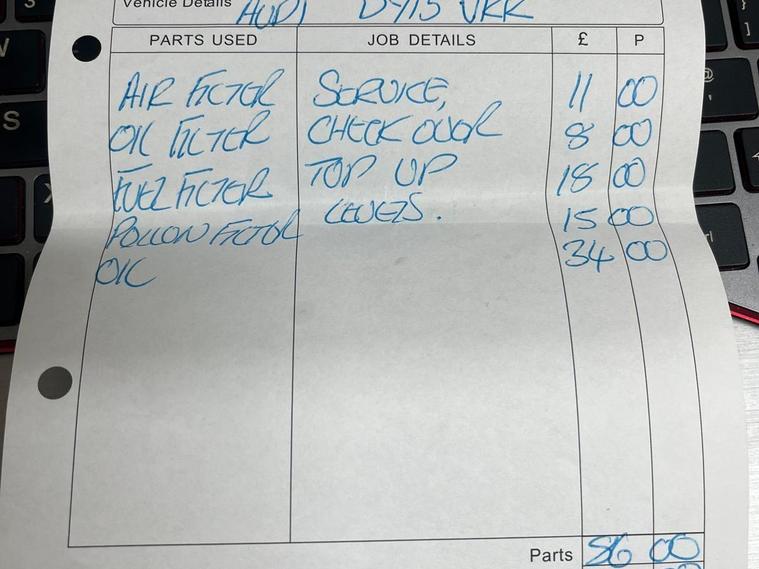 Vehicle Details AUDI DY15 VRR
PARTS USED JOB DETAILS £ P
AIR FILTER SERVICE, 11 00
OIL FILTER CHECK OVER 8 00
FUEL FILTER TOP UP 18 00
POLLON FILTER LEVELS. 15 00
OIL 34 00
Parts 86 00